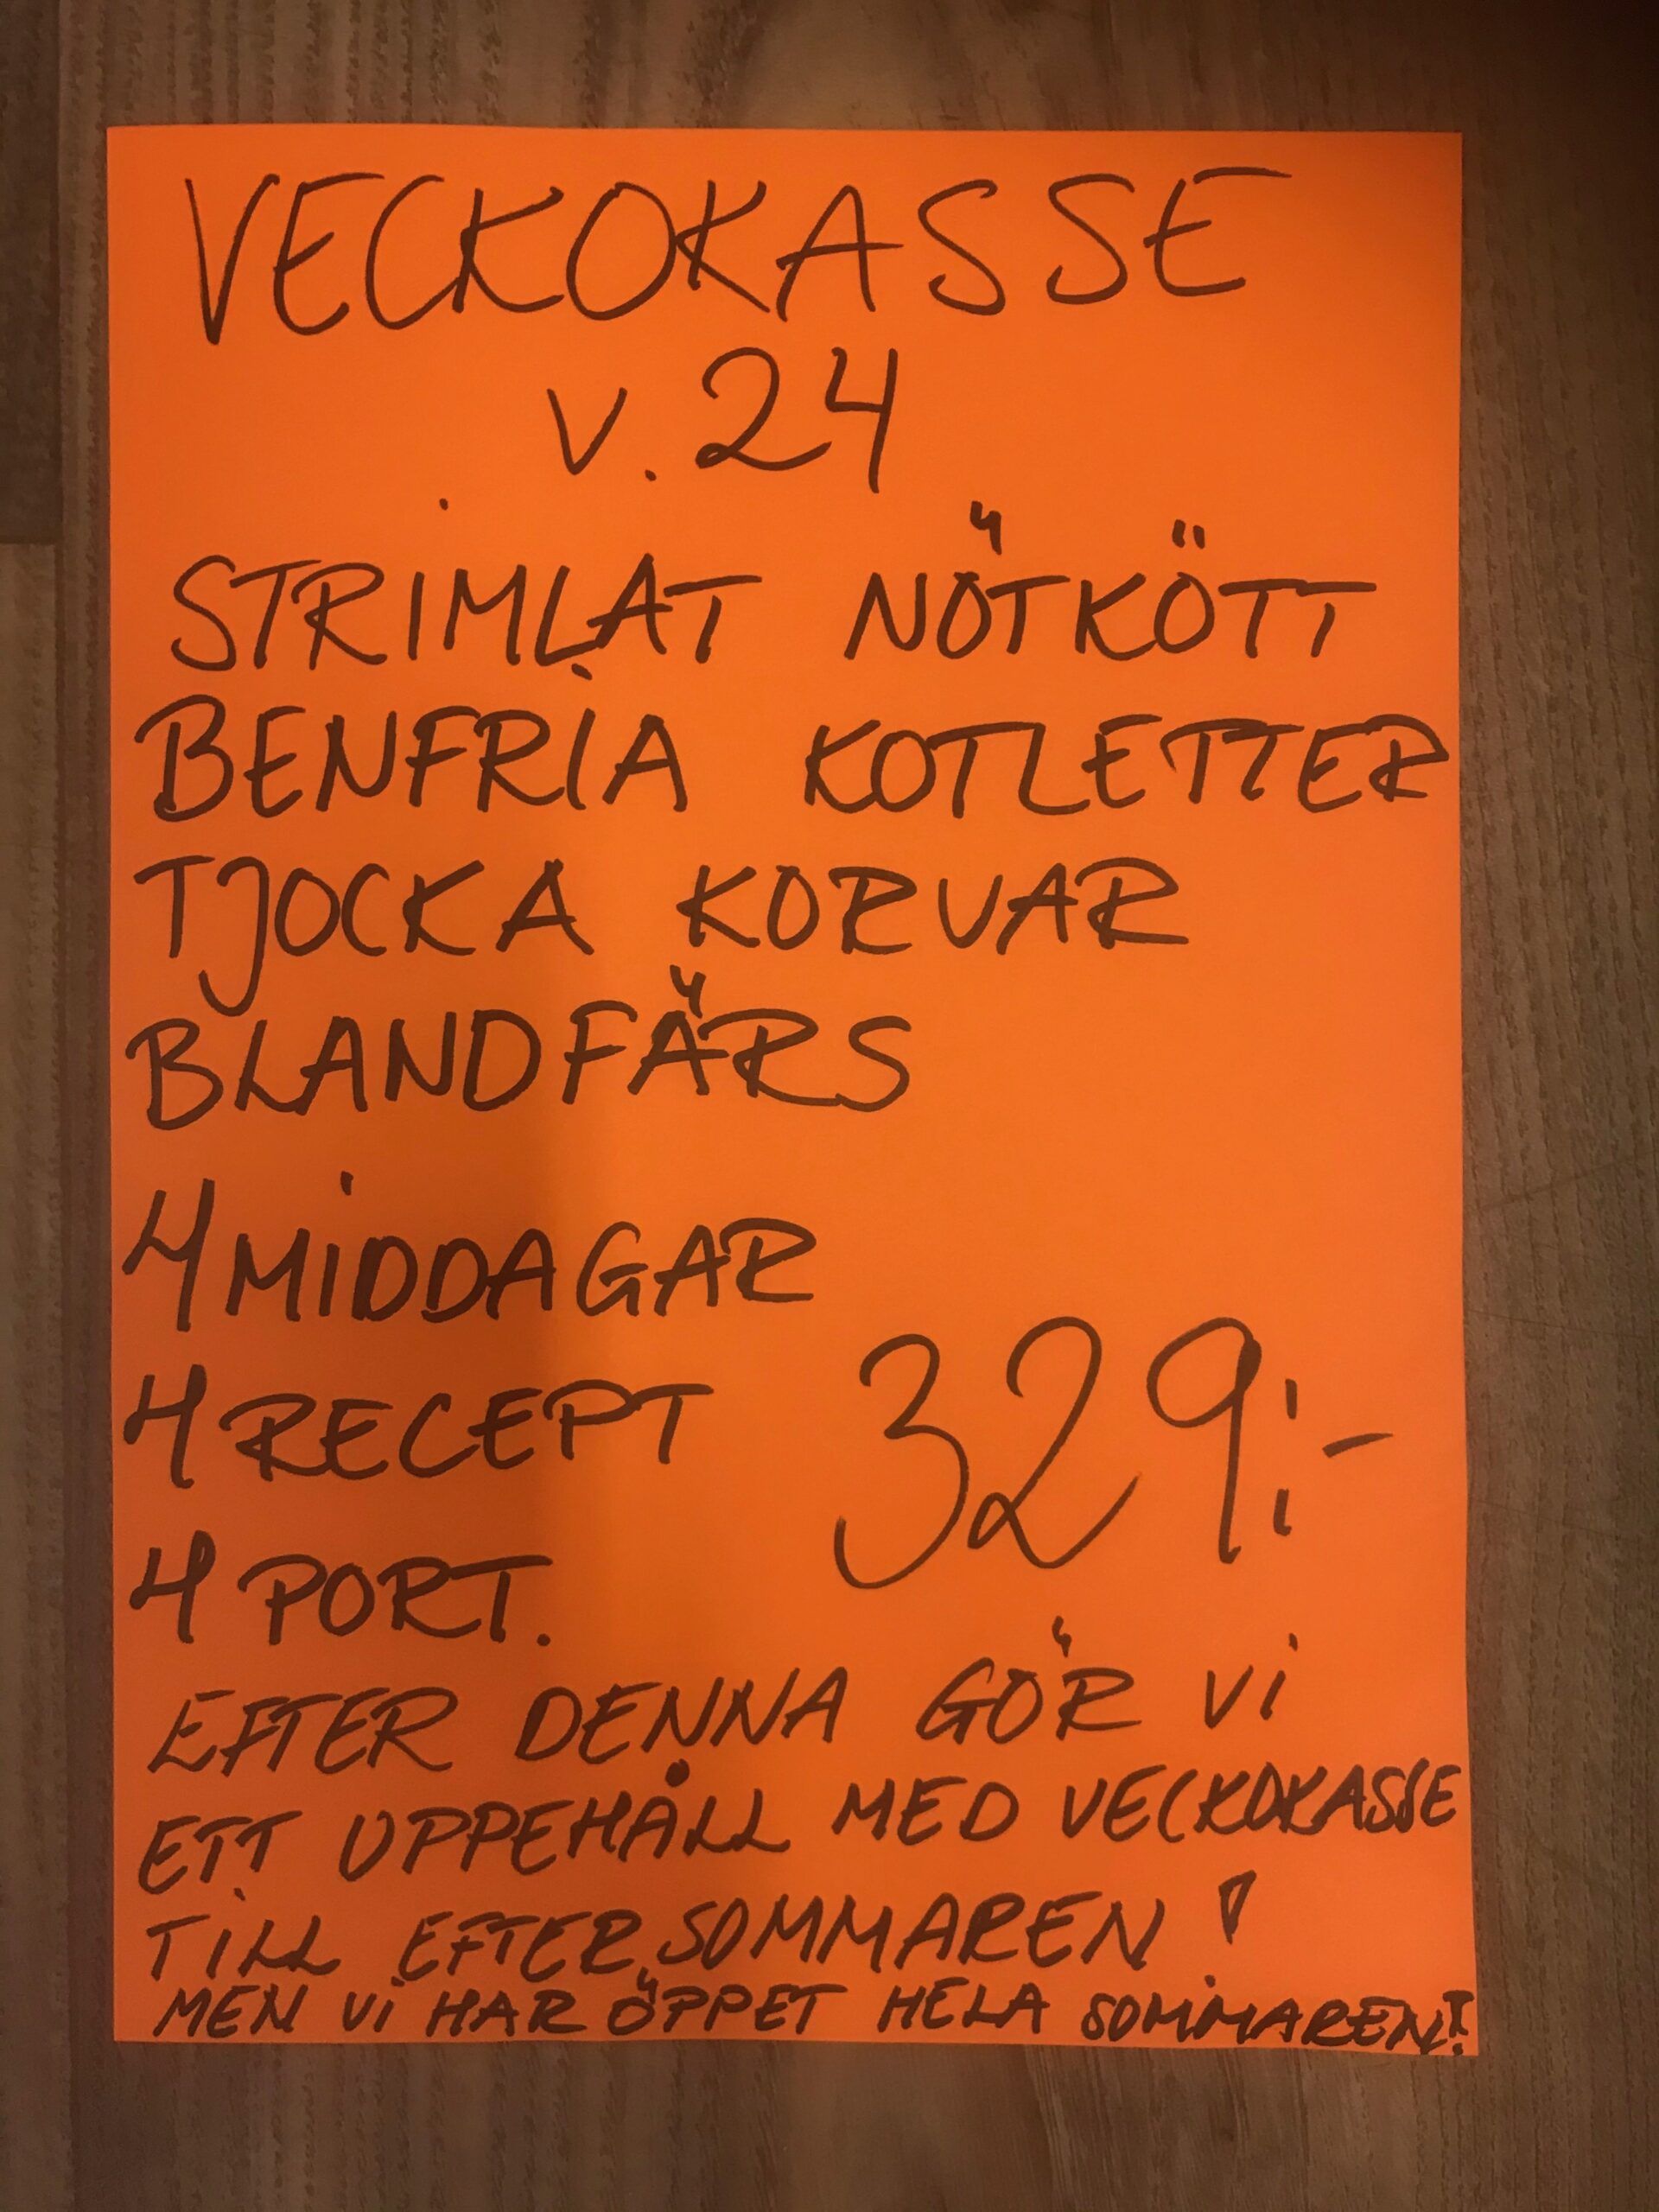 VECKOKASSE
v.24
STRIMLAT NÖTKÖTT
BENFRIA KOTLETTER
TJOCKA KORVAR
BLANDFÄRS
4 MIDDAGAR
4 RECEPT
329:-
4 PORT.
EFTER DENNA GÖR Vi
ETT UPPEHÅLL MED VECKOKASSE
TiLL EFTER SOMMAREN!
MEN Vi HAR ÖPPET HELA SOMMAREN!